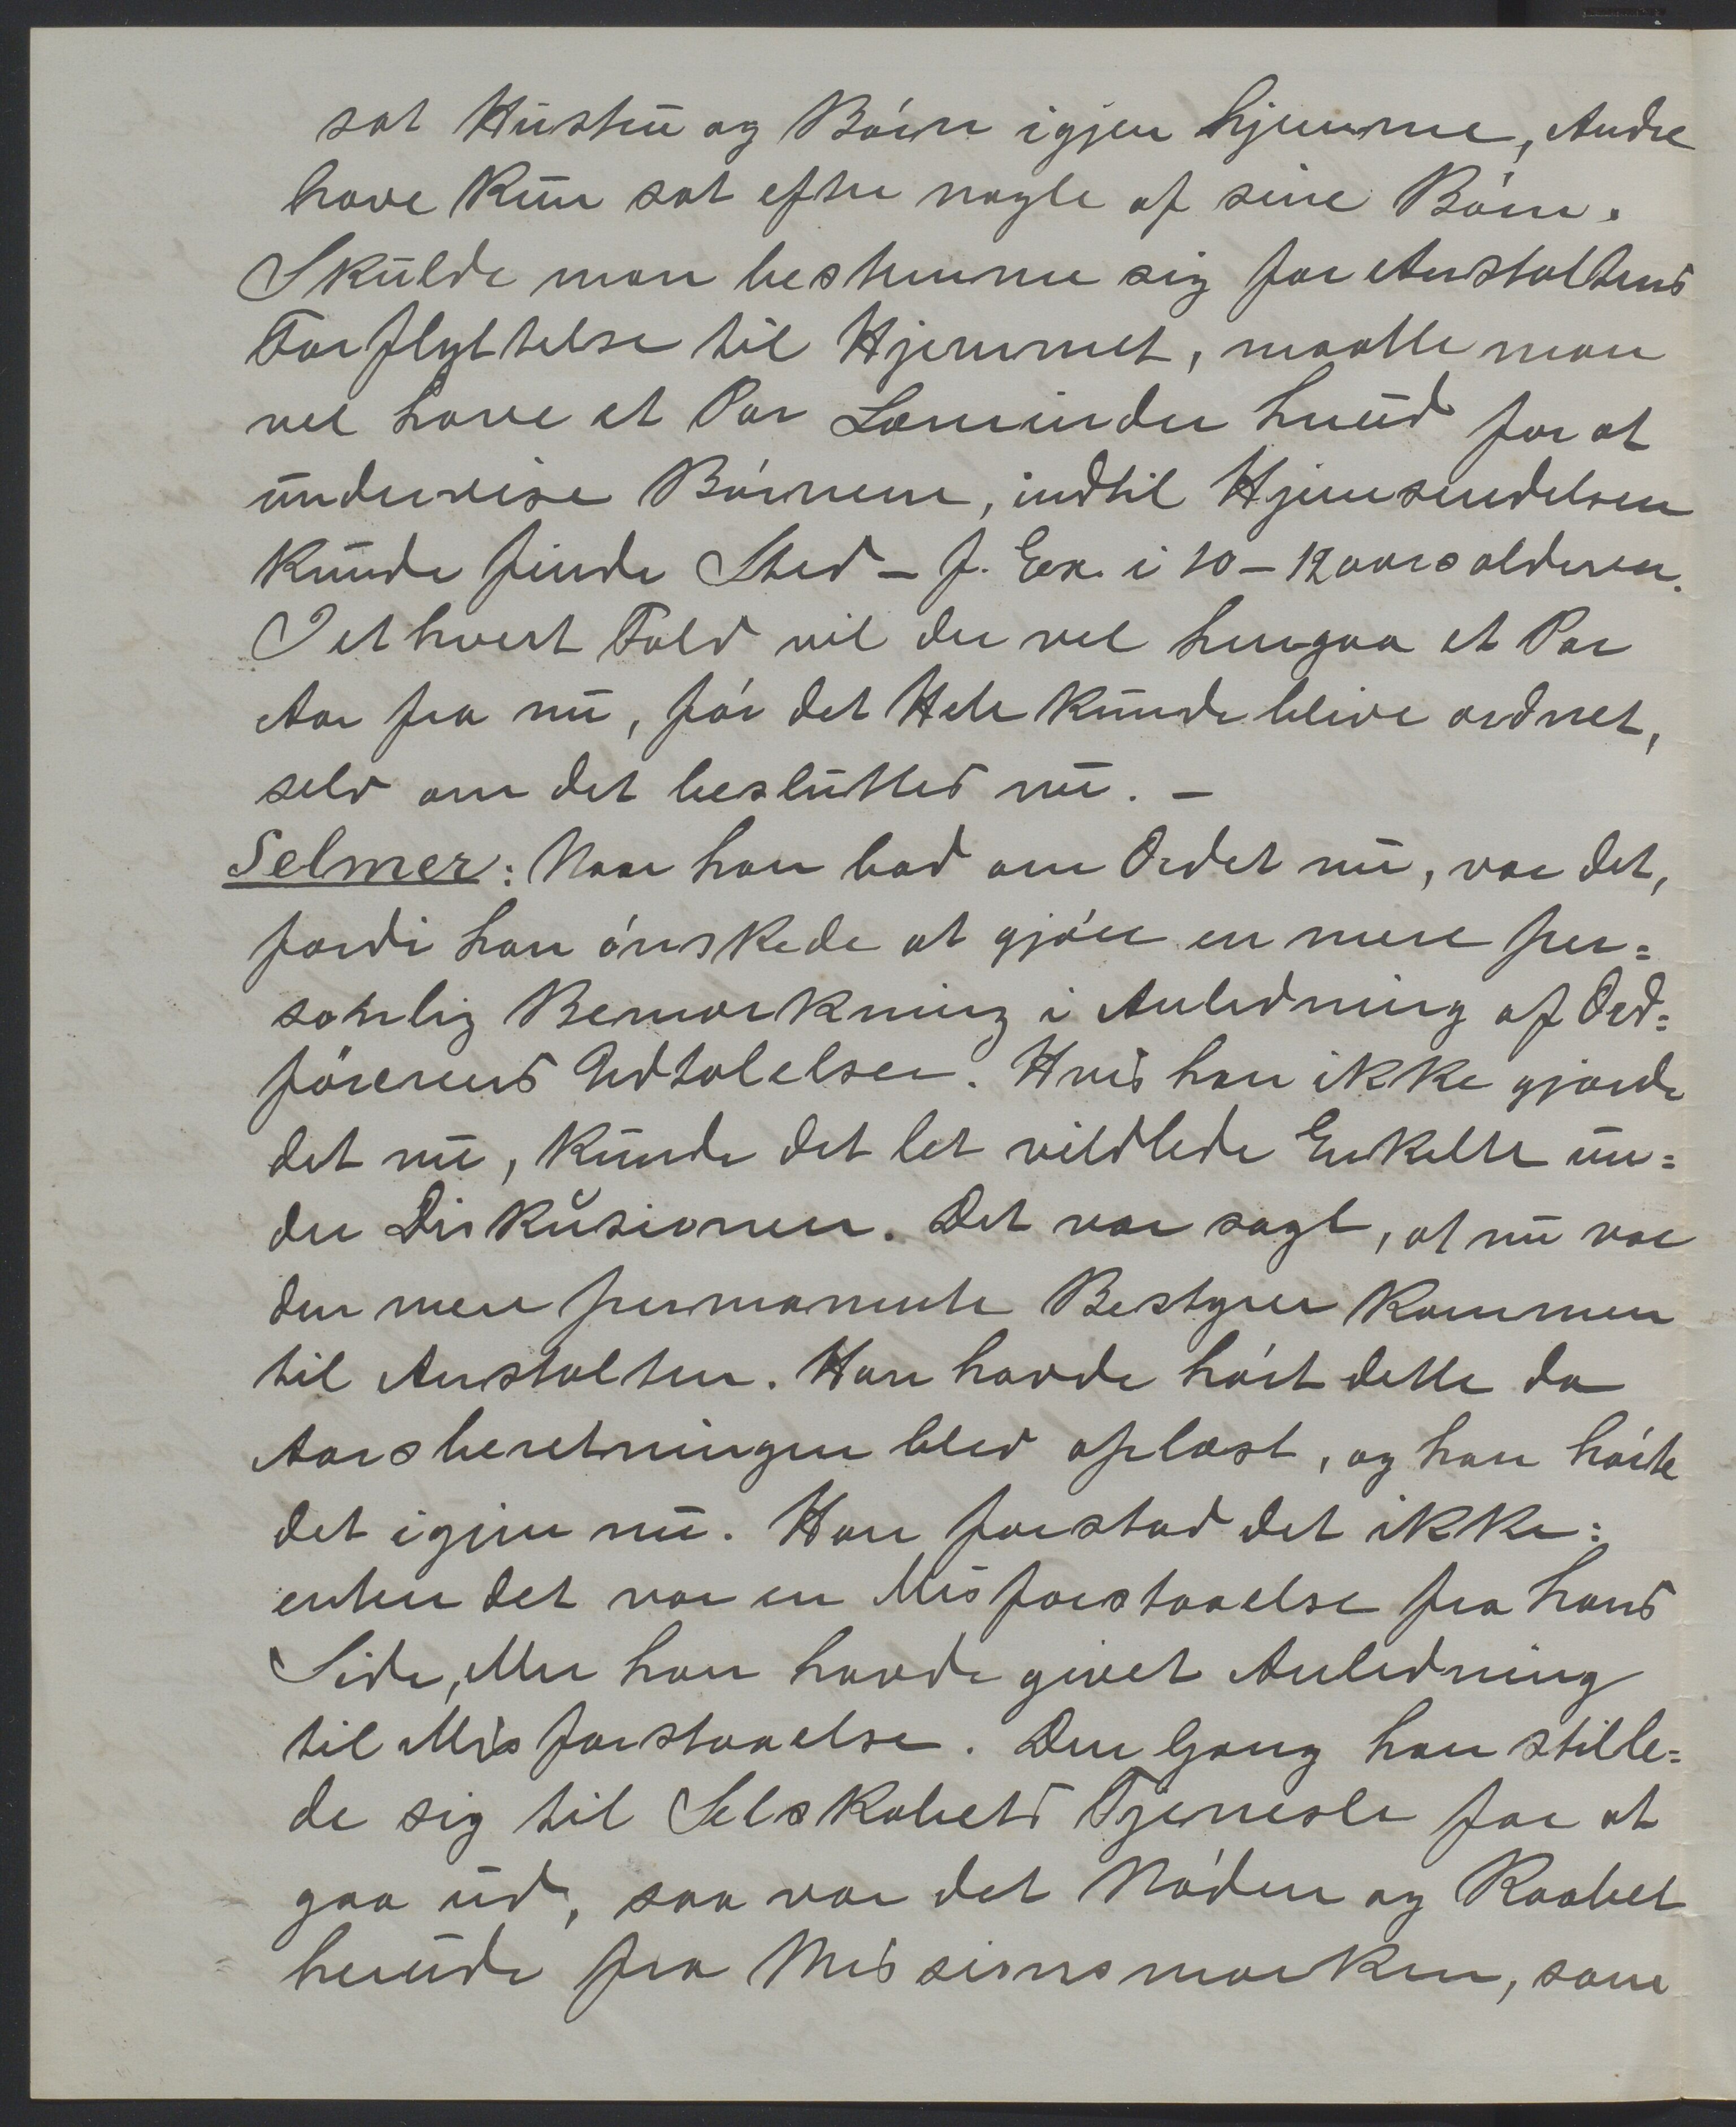 sat Hustru og Börn igjen hjemme, Andre
have kun sat efter nogle af sine Börn.
Skulde man bestemme sig for Anstaltens
Forflyttelse til Hjemmet, maatte man
vel have et Par Lærerinder herud for at
undervise Börnene, indtil Hjemsendelsen
kunde finde Sted – f. Ex. i 10 – 12 aarsalderen.
I ethvert Fald vil der vel hengaa et Par
Aar fra nu, för det Hele kunde blive ordnet,
selv om det besluttes nu. –
Selmer: Naar han bad om Ordet nu, var det,
fordi han önskede at gjöre en mere per=
sonlig Bemærkning i Anledning af Ord=
förerens Udtalelser. Hvis han ikke gjorde
det nu, kunde det let vildlede Enkelte un=
der Diskusionen. Det var sagt, at nu var
den mere permanente Bestyrer kommen
til Anstalten. Han havde hört dette da
Aarsberetningen blev oplæst, og han hörte
det igjen nu. Han forstod det ikke:
enten det var en Misforstaaelse fra hans
Side, eller han havde givet Anledning
til Misforstaaelse. Den Gang han stille=
de sig til Selskabets Tjeneste for at
gaa ud, saa var det Nöden og Raabet
herude fra Missionsmarken, som